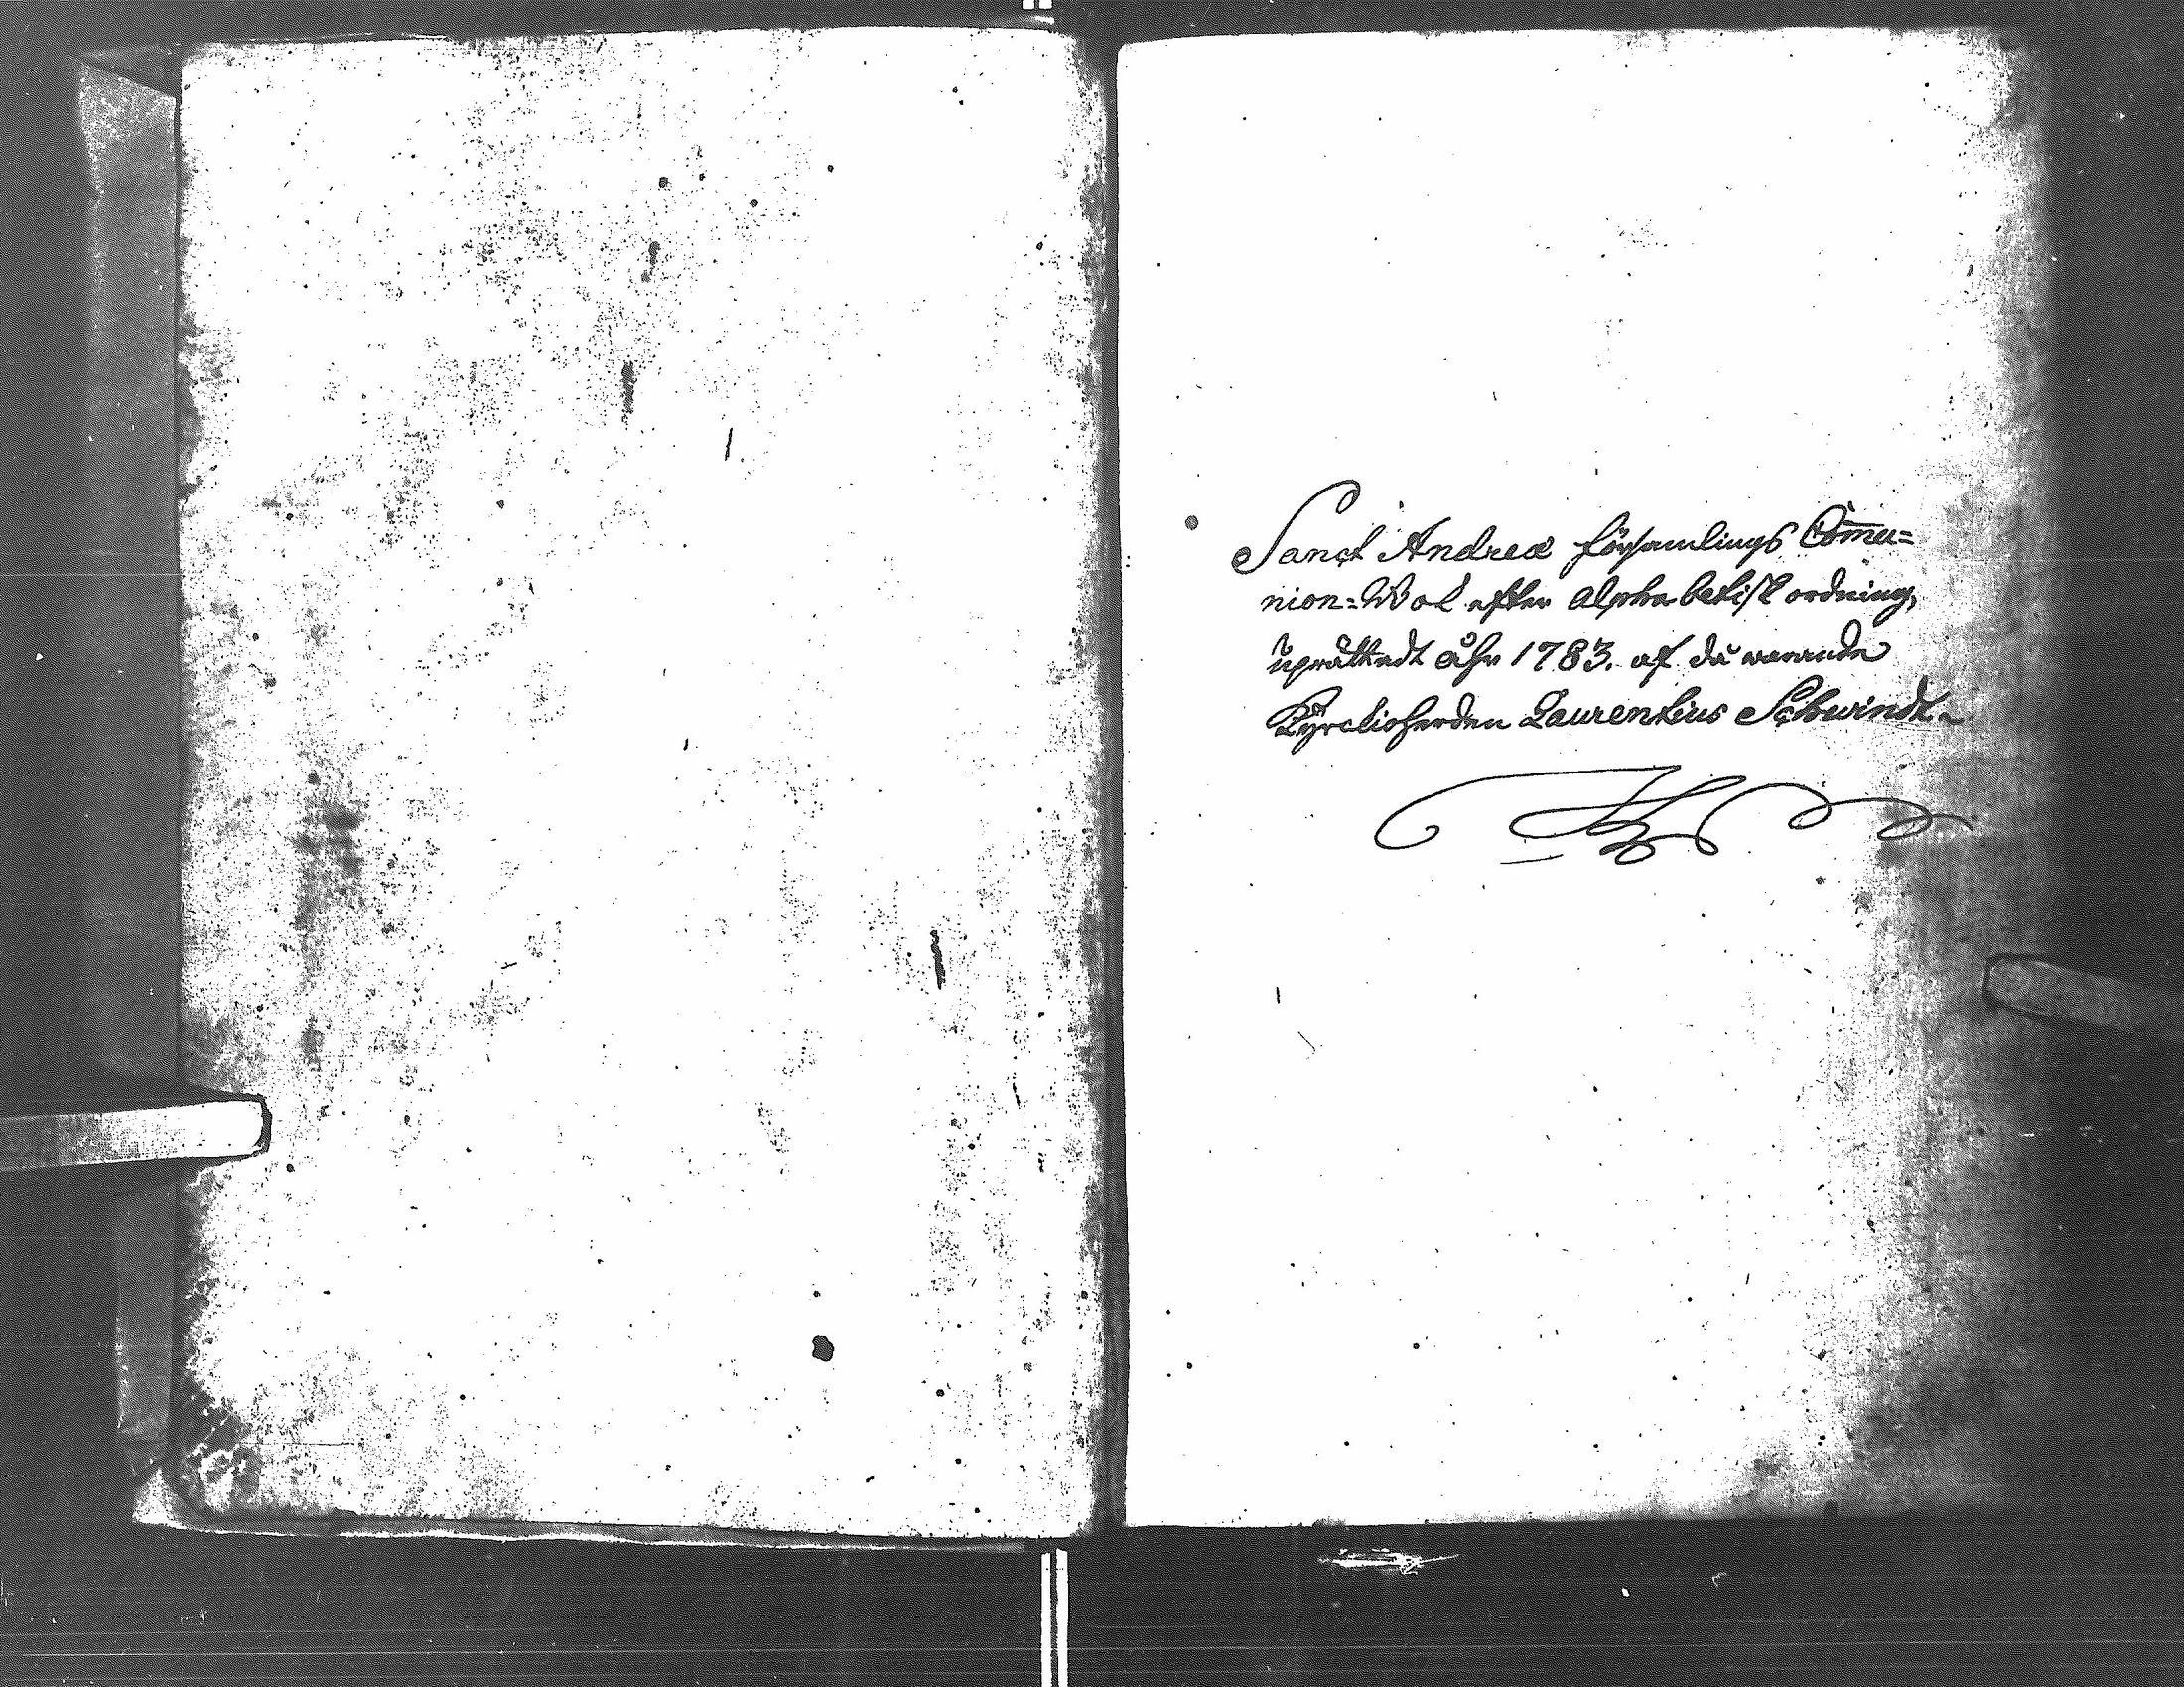 Sanct Andreæ församlings Com̅u=
nion=Bok efter alphabetisk ordning,
uprättadt åhr 1783. af då warande
Kyrckioherden Laurentius Schwindt.